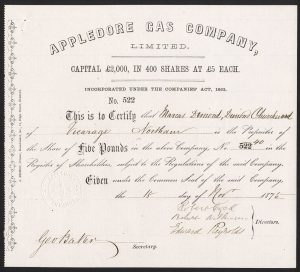 APPLEDORE GAS COMPANY,
LIMITED.
CAPITAL £2,000, IN 400 SHARES AT £5 EACH.
INCORPORATED UNDER THE COMPANIES' ACT, 1862.
No. 522
This is to Certify that
of Vicarage Northam is the Proprietor of
the Share of Five Pounds in the above Company, No. 522 in the
Register of Shareholders, subject to the Regulations of the said Company.
Given under the Common Seal of the said Company,
the 18 day of Nov 1876
Directors.
Edward Reynolds
Geo Baker
Secretary.